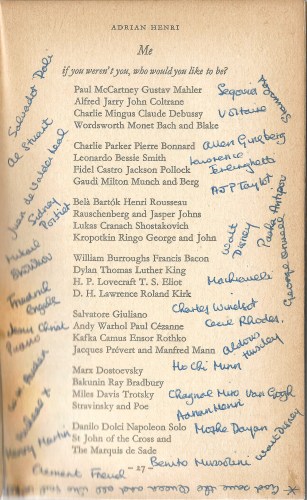 ADRIAN HENRI
Me
if you weren't you, who would you like to be?
Paul McCartney Gustav Mahler
Alfred Jarry John Coltrane
Charlie Mingus Claude Debussy
Wordsworth Monet Bach and Blake
Charlie Parker Pierre Bonnard
Leonardo Bessie Smith
Fidel Castro Jackson Pollock
Gaudi Milton Munch and Berg
Belà Bartók Henri Rousseau
Rauschenberg and Jasper Johns
Lukas Cranach Shostakovich
Kropotkin Ringo George and John
William Burroughs Francis Bacon
Dylan Thomas Luther King
H. P. Lovecraft T. S. Eliot
D. H. Lawrence Roland Kirk
Salvatore Giuliano
Andy Warhol Paul Cézanne
Kafka Camus Ensor Rothko
Jacques Prévert and Manfred Mann
Marx Dostoevsky
Bakunin Ray Bradbury
Miles Davis Trotsky
Stravinsky and Poe
Danilo Dolci Napoleon Solo
St John of the Cross and
The Marquis de Sade
- 27 -
Salvador Dali
Al Stuart
Sidney
Poitier
Henry Martin
Clement Freud
Segovia
Voltaire
Allen Ginsberg
Lawrence
Ferlinghetti
AJP Taylor
Walt
Disney
George Orwell
Machiavelli
Cecil Rhodes.
Aldous
Huxley
Ho Chi Minh
Chagnal Mur Van Gogh
Adrian Henri
Moshe Dayan
Walt Duncan
Benito Mussolini